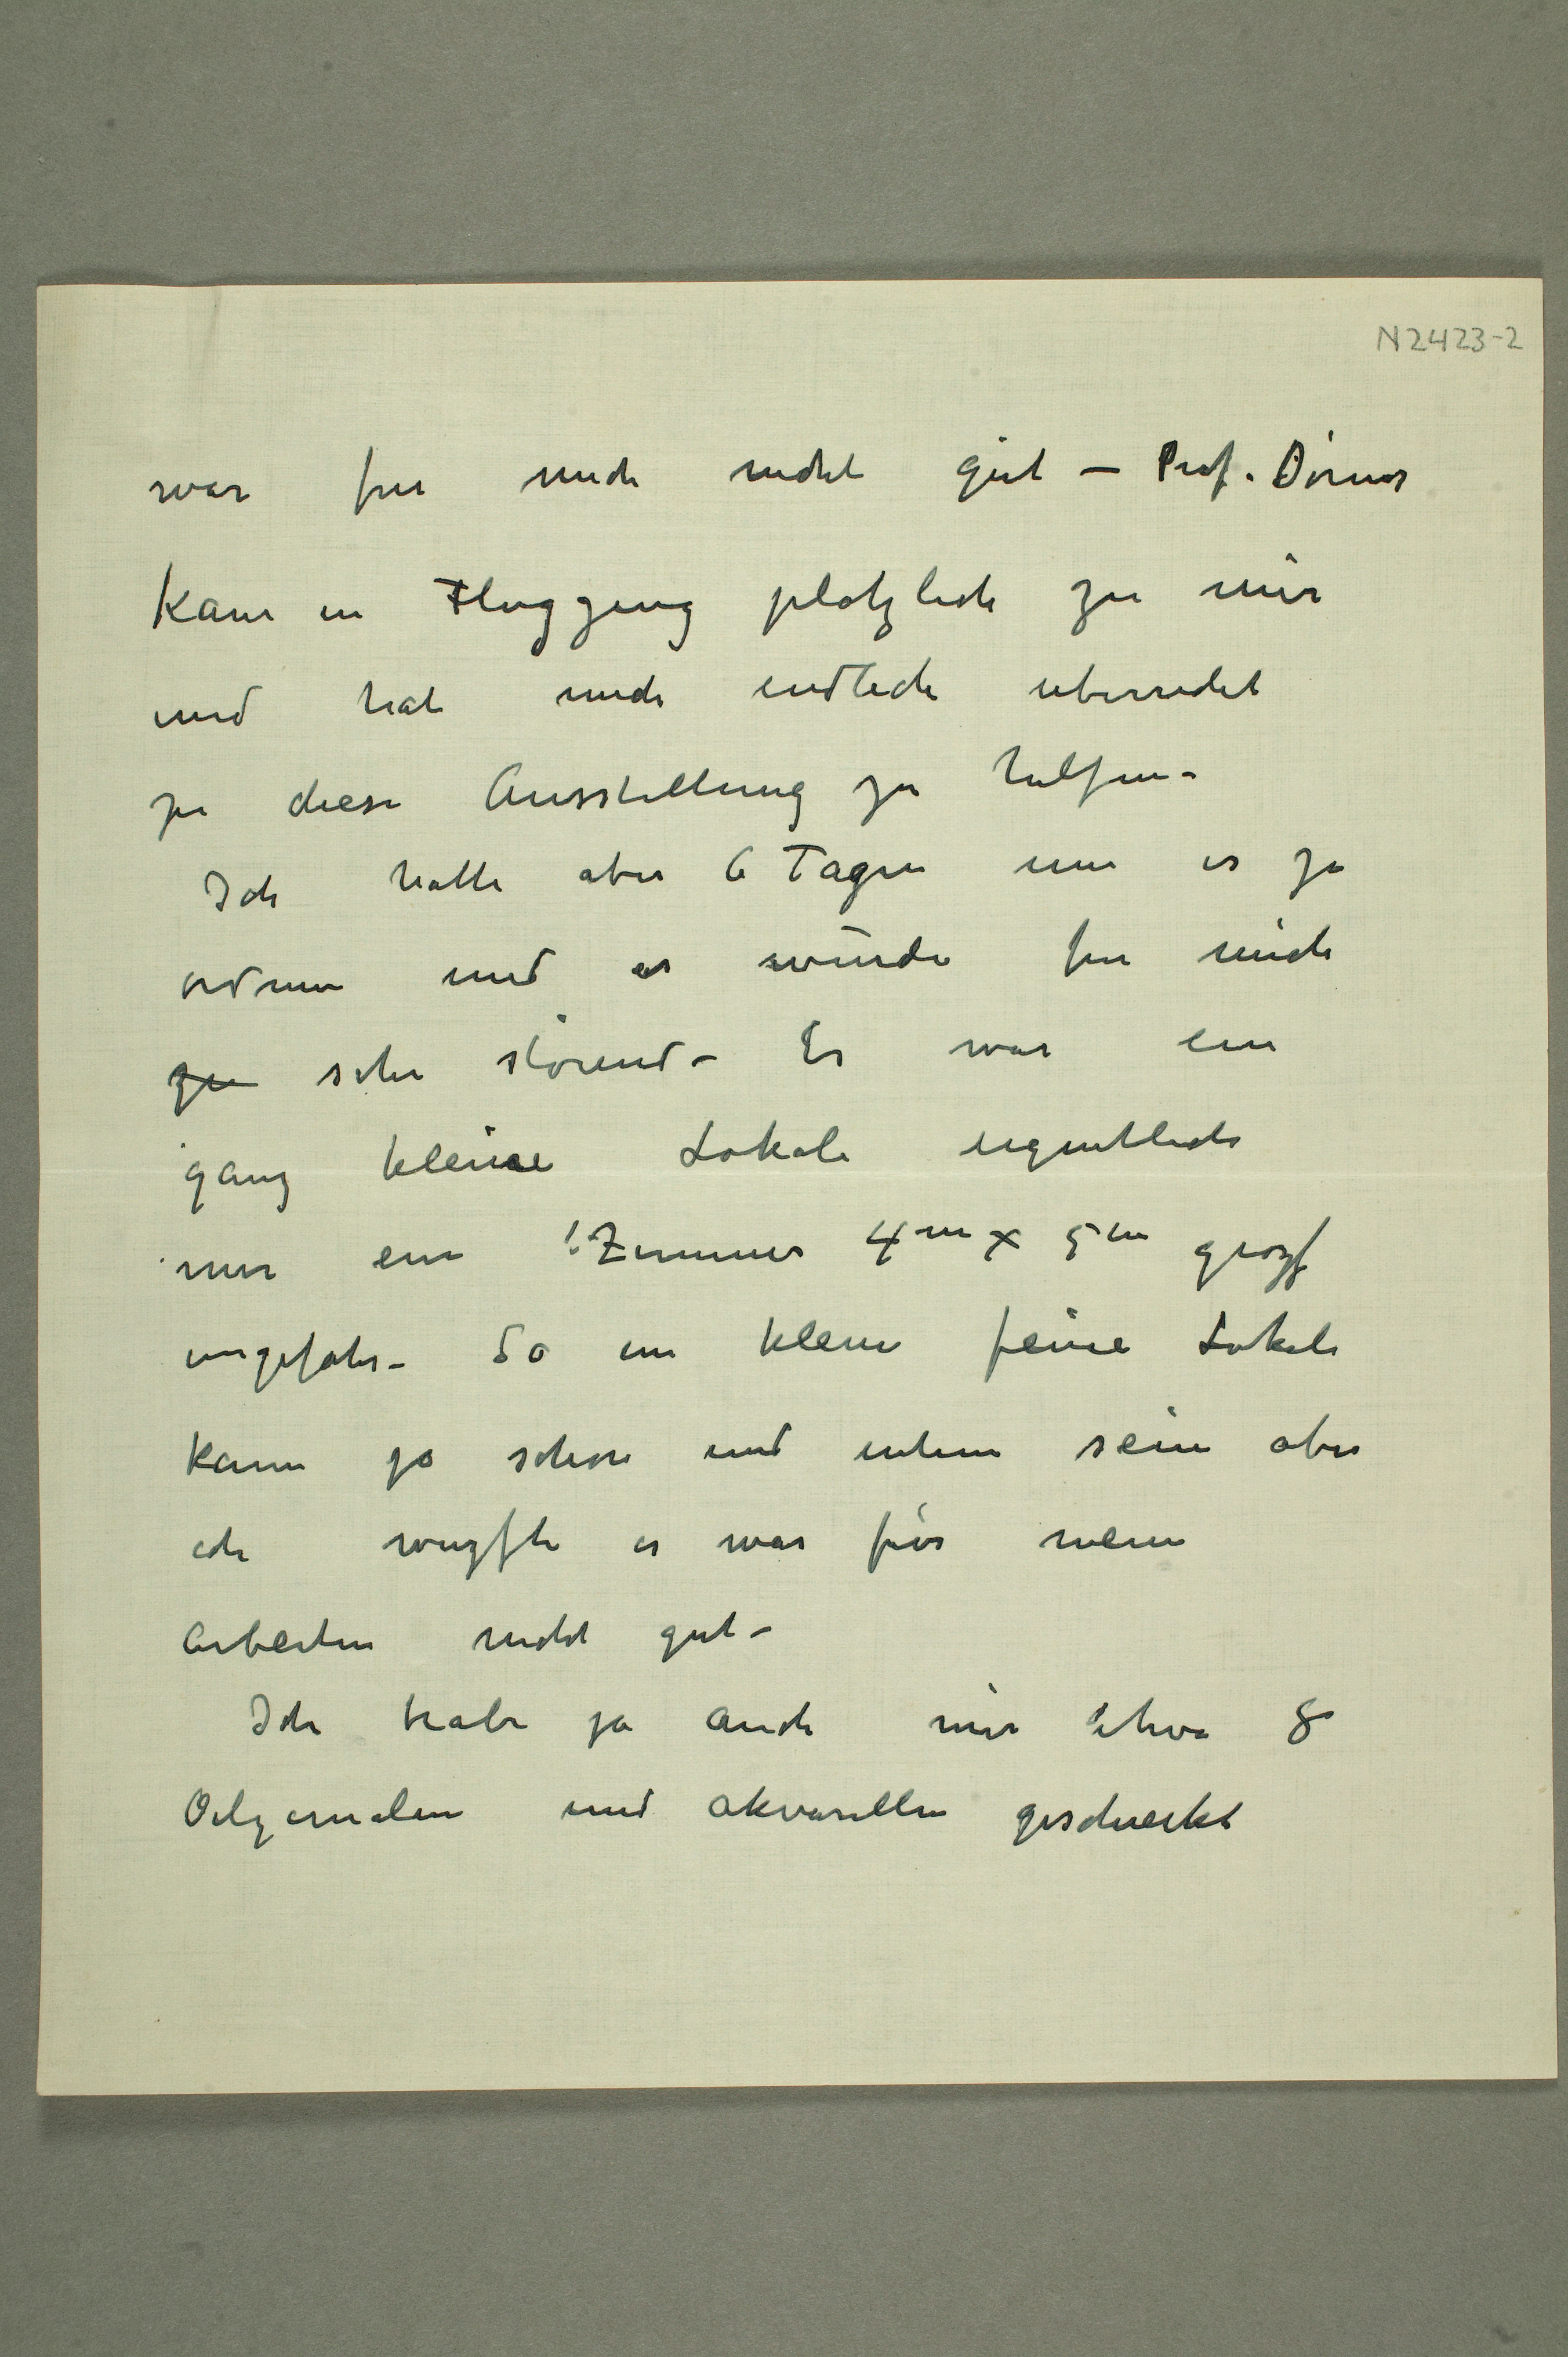 N 2423-2
war für mich nicht gut – Prof. Dörner
kam in Flugzeug plotzlich zu mir
und hat mich endlich uberredet
zu diese Ausstellung zu hulfen –
Ich hatte aber 6 Tagen um es zu
ordnen und es wurde fur mich
zu sehr störend – Es war ein
ganz kleine Lokale eigentlich
nur ein Zimmer 4m x 5m grozs
ungefahr – So ein kleine feine Lokale
kann ja schon und intim sein aber
ich wuzste es war für meine
Arbeiten nicht gut –
Ich habe ja auch nur etwa 8
Oelgemalen und akvarellen geschickt